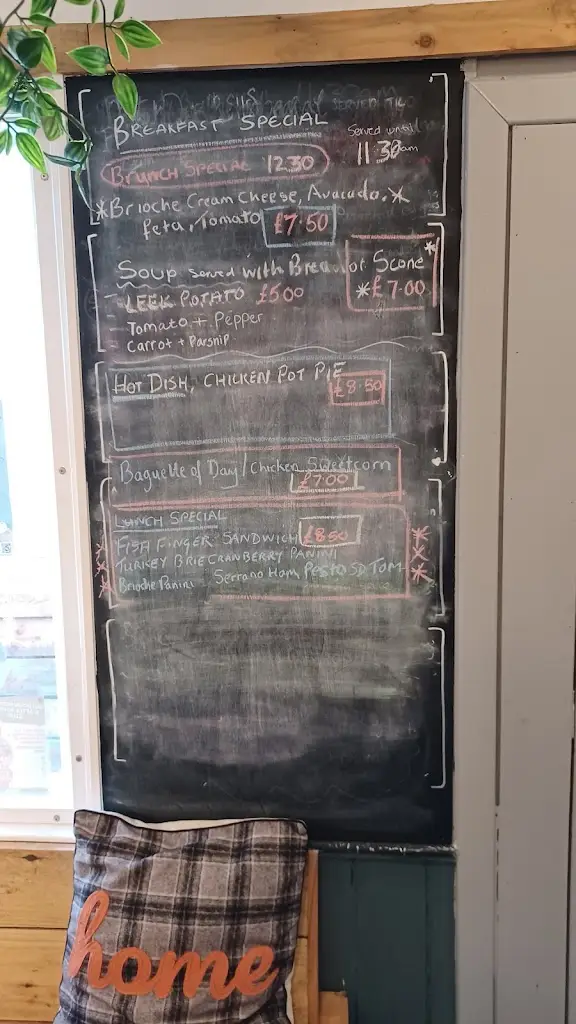 BREAKFAST SPECIAL
Served until
11.30am
BRUNCH SPECIAL 12.30
*Brioche Cream Cheese, Avacado,*
feta, Tomato £7.50
Soup served with Bread or Scone*
- LEEK POTATO £5.00 *£7.00
- Tomato + Pepper
- Carrot + Parsnip
HOT DISH, CHICKEN POT PIE
£8.50
Baguette of Day / Chicken Sweetcorn
£7.00
LUNCH SPECIAL
FISH FINGER SANDWICH £8.50
TURKEY BRIE CRANBERRY PANINI
Brioche Panini Serrano Ham, Pesto SD Tom
home